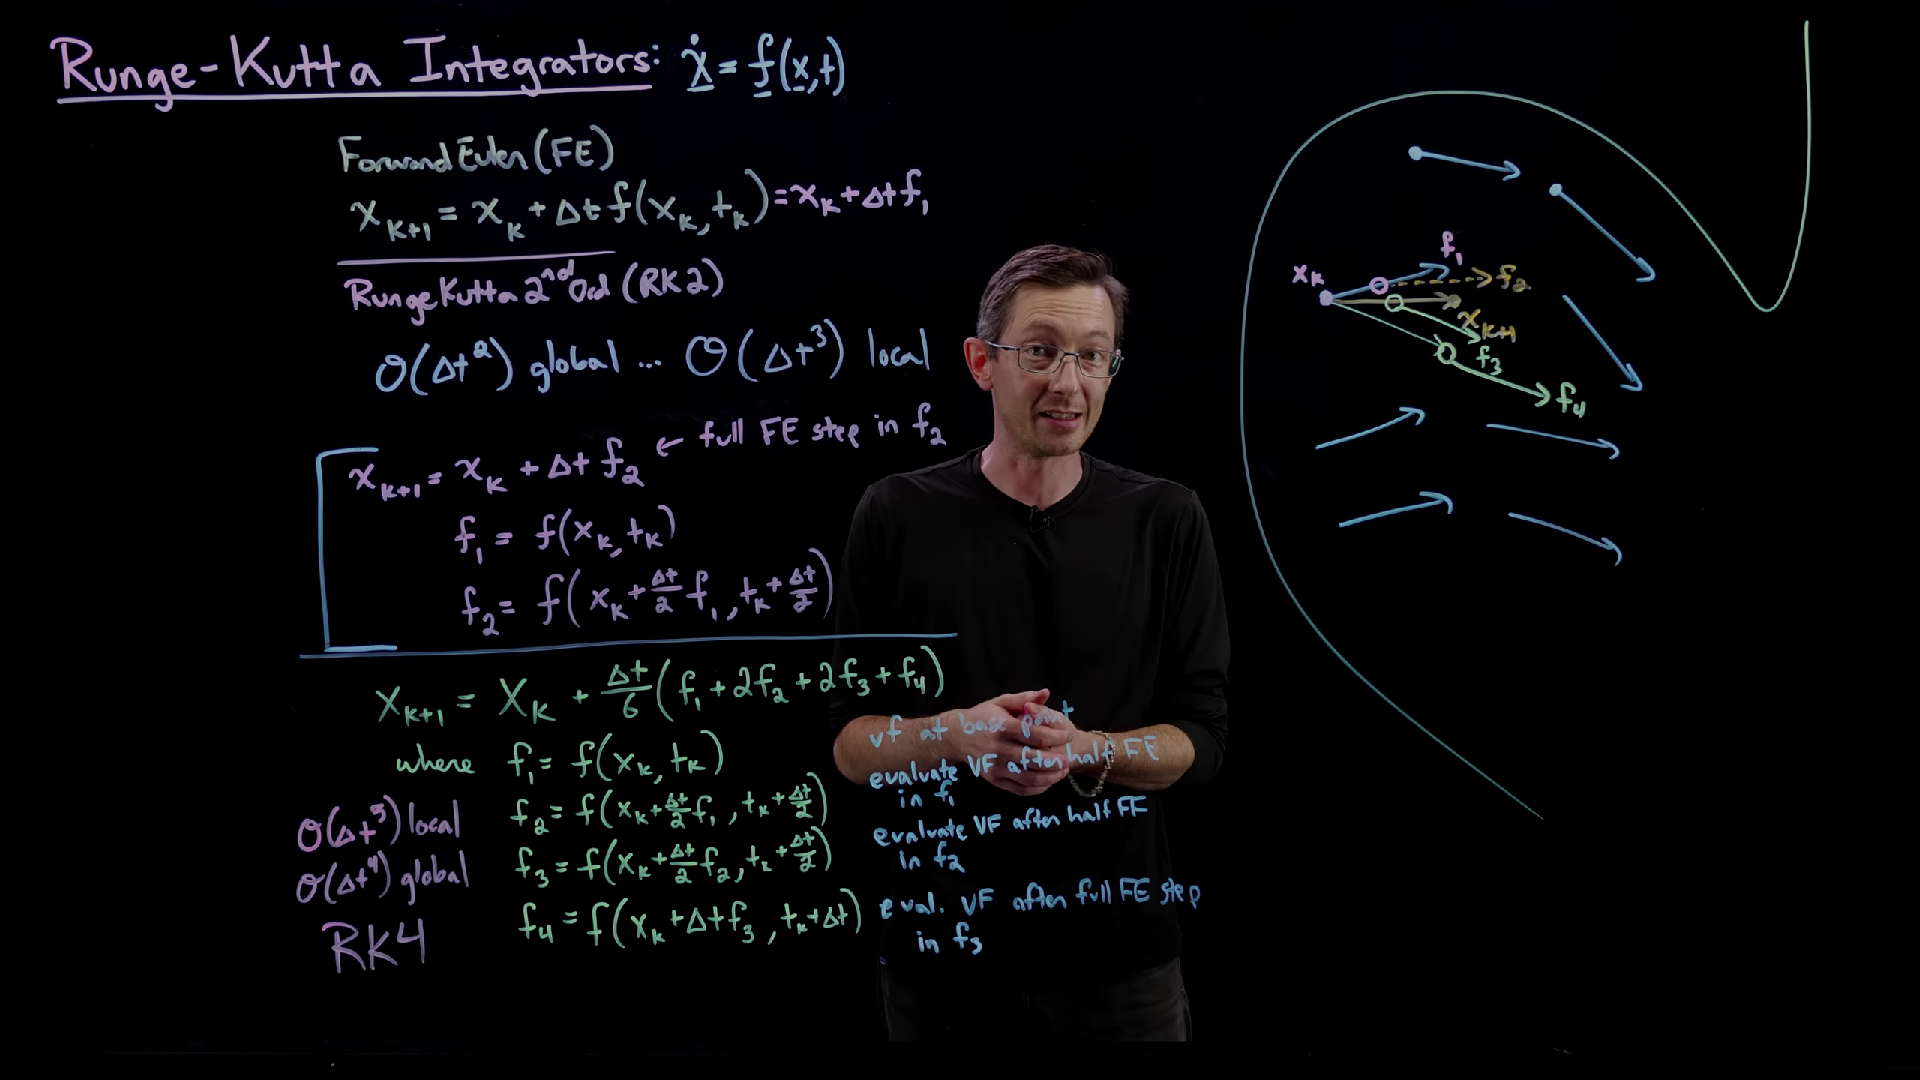 Runge-Kutta Integrators: ẋ = f(x,t)
Forward Euler (FE)
x_{k+1} = x_k + Δt f(x_k, t_k) = x_k + Δt f_1
Runge Kutta 2nd Ord (RK2)
O(Δt^2) global ... O(Δt^3) local
x_{k+1} = x_k + Δt f_2 ← full FE step in f_2
f_1 = f(x_k, t_k)
f_2 = f(x_k + Δt/2 f_1, t_k + Δt/2)
x_{k+1} = x_k + Δt/6 (f_1 + 2f_2 + 2f_3 + f_4)
where f_1 = f(x_k, t_k) vf at base point
f_2 = f(x_k + Δt/2 f_1, t_k + Δt/2) evaluate VF after half FE
in f_1
f_3 = f(x_k + Δt/2 f_2, t_k + Δt/2) evaluate VF after half FE
in f_2
f_4 = f(x_k + Δt f_3, t_k + Δt) eval. VF after full FE step
in f_3
O(Δt^5) local
O(Δt^4) global
RK4
x_k
f_1
f_2
x_{k+1}
f_3
f_4